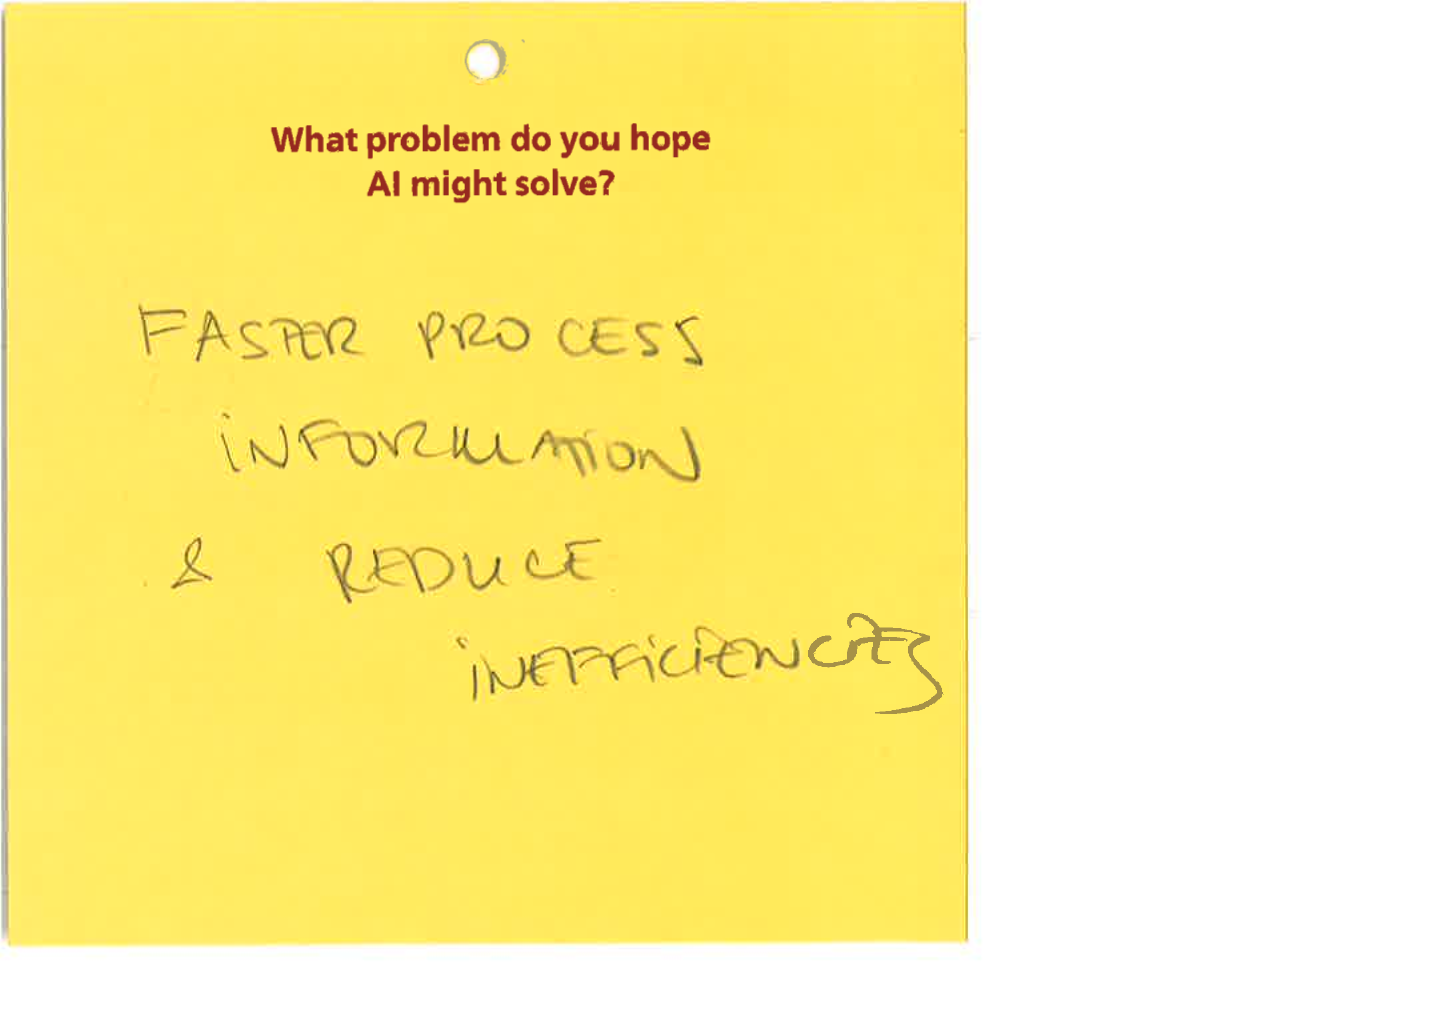 What problem do you hope
AI might solve?
FASTER PROCESS
iNFORMATION
& REDUCE
iNEFFICIENCIES